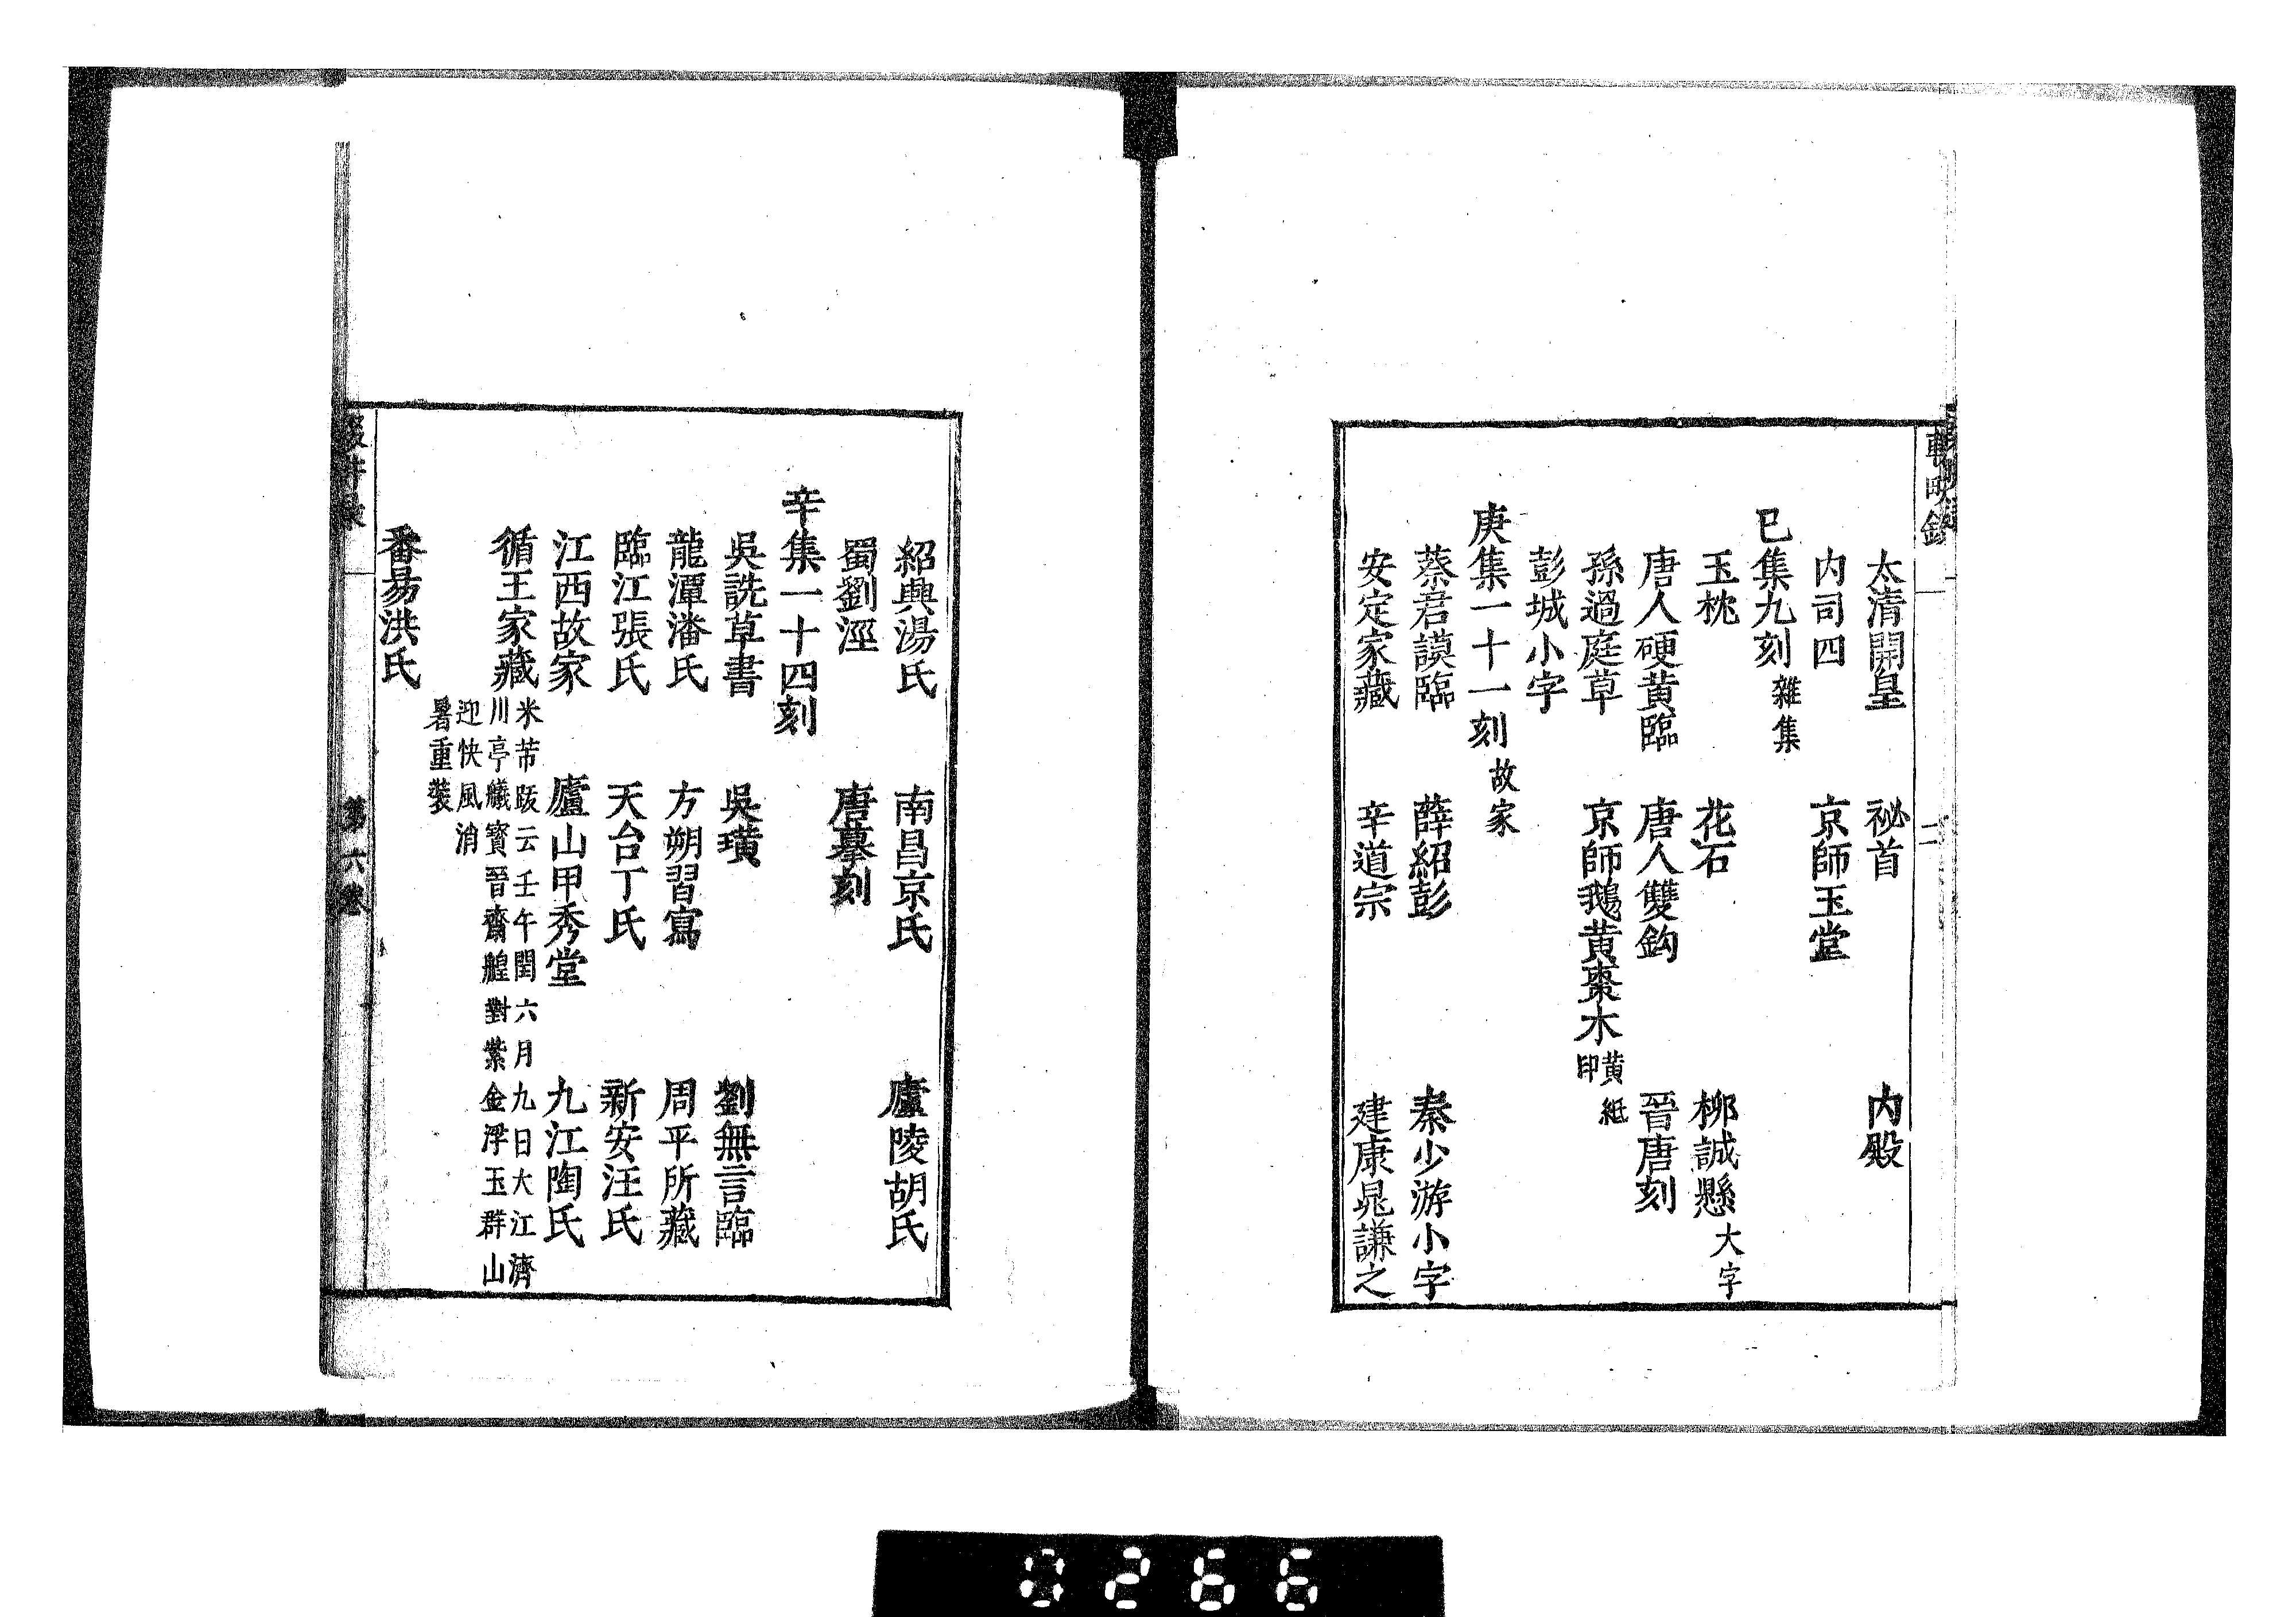 太清開皇 祕首 内殿
内司四 京師玉堂
已集九刻 雜集
玉枕 花石 柳誠懸 大字
唐人硬黃臨 唐人雙鈎 晉唐刻
孫過庭草 京師鵝黃棗木 黃紙印
彭城小字
庚集一十一刻 故家
蔡君謨臨 薛紹彭 秦少游小字
安定家藏 辛道宗 建康晁謙之
紹興湯氏 南昌京氏 廬陵胡氏
蜀劉涇 唐摹刻
辛集一十四刻
吳說草書 吳璜 劉無言臨
龍潭潘氏 方朔習寫 周平所藏
臨江張氏 天台丁氏 新安汪氏
江西故家 廬山甲秀堂 九江陶氏
循王家藏
米芾跋云壬午閏六月九日大江濟
川亭艤寳晉齋艎對紫金浮玉群山
迎快風消
暑重裝
番昜洪氏
第六卷
0266